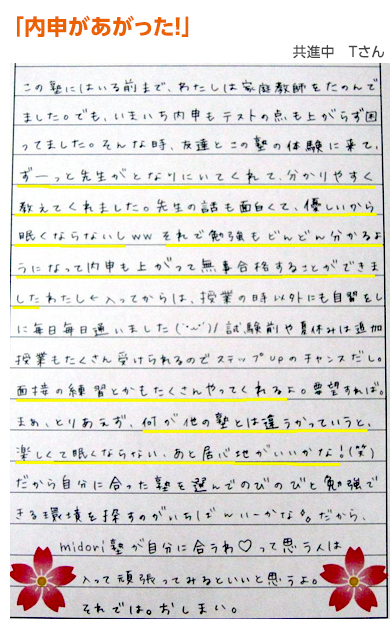 「内申があがった!」
共進中　Tさん
この塾にはいる前まで、わたしは家庭教師をたのんで
ました。でも、いまいち内申もテストの点も上がらず困
ってました。そんな時、友達とこの塾の体験に来て、
ずーっと先生がとなりにいてくれて、分かりやすく
教えてくれました。先生の話も面白くて、優しいから
眠くならないしww それで勉強もどんどん分かるよ
うになって内申も上がって無事合格することができま
した わたし← 入ってからは、授業の時以外にも自習をし
に毎日毎日通いました(´･ｰ･`)/ 試験前や夏休みは追加
授業もたくさん受けられるのでステップupのチャンスだし。
面接の練習とかもたくさんやってくれるよ。要望すれば。
まぁ、とりあえず、何が他の塾とは違うかっていうと、
楽しくて眠くならない、あと居心地がいいかな!(笑)
だから自分に合った塾を選んでのびのびと勉強で
きる環境を探すのがいちばんいーかな。だから、
midori塾が自分に合うわ♡って思う人は
入って頑張ってみるといいと思うよ。
それでは。おしまい。